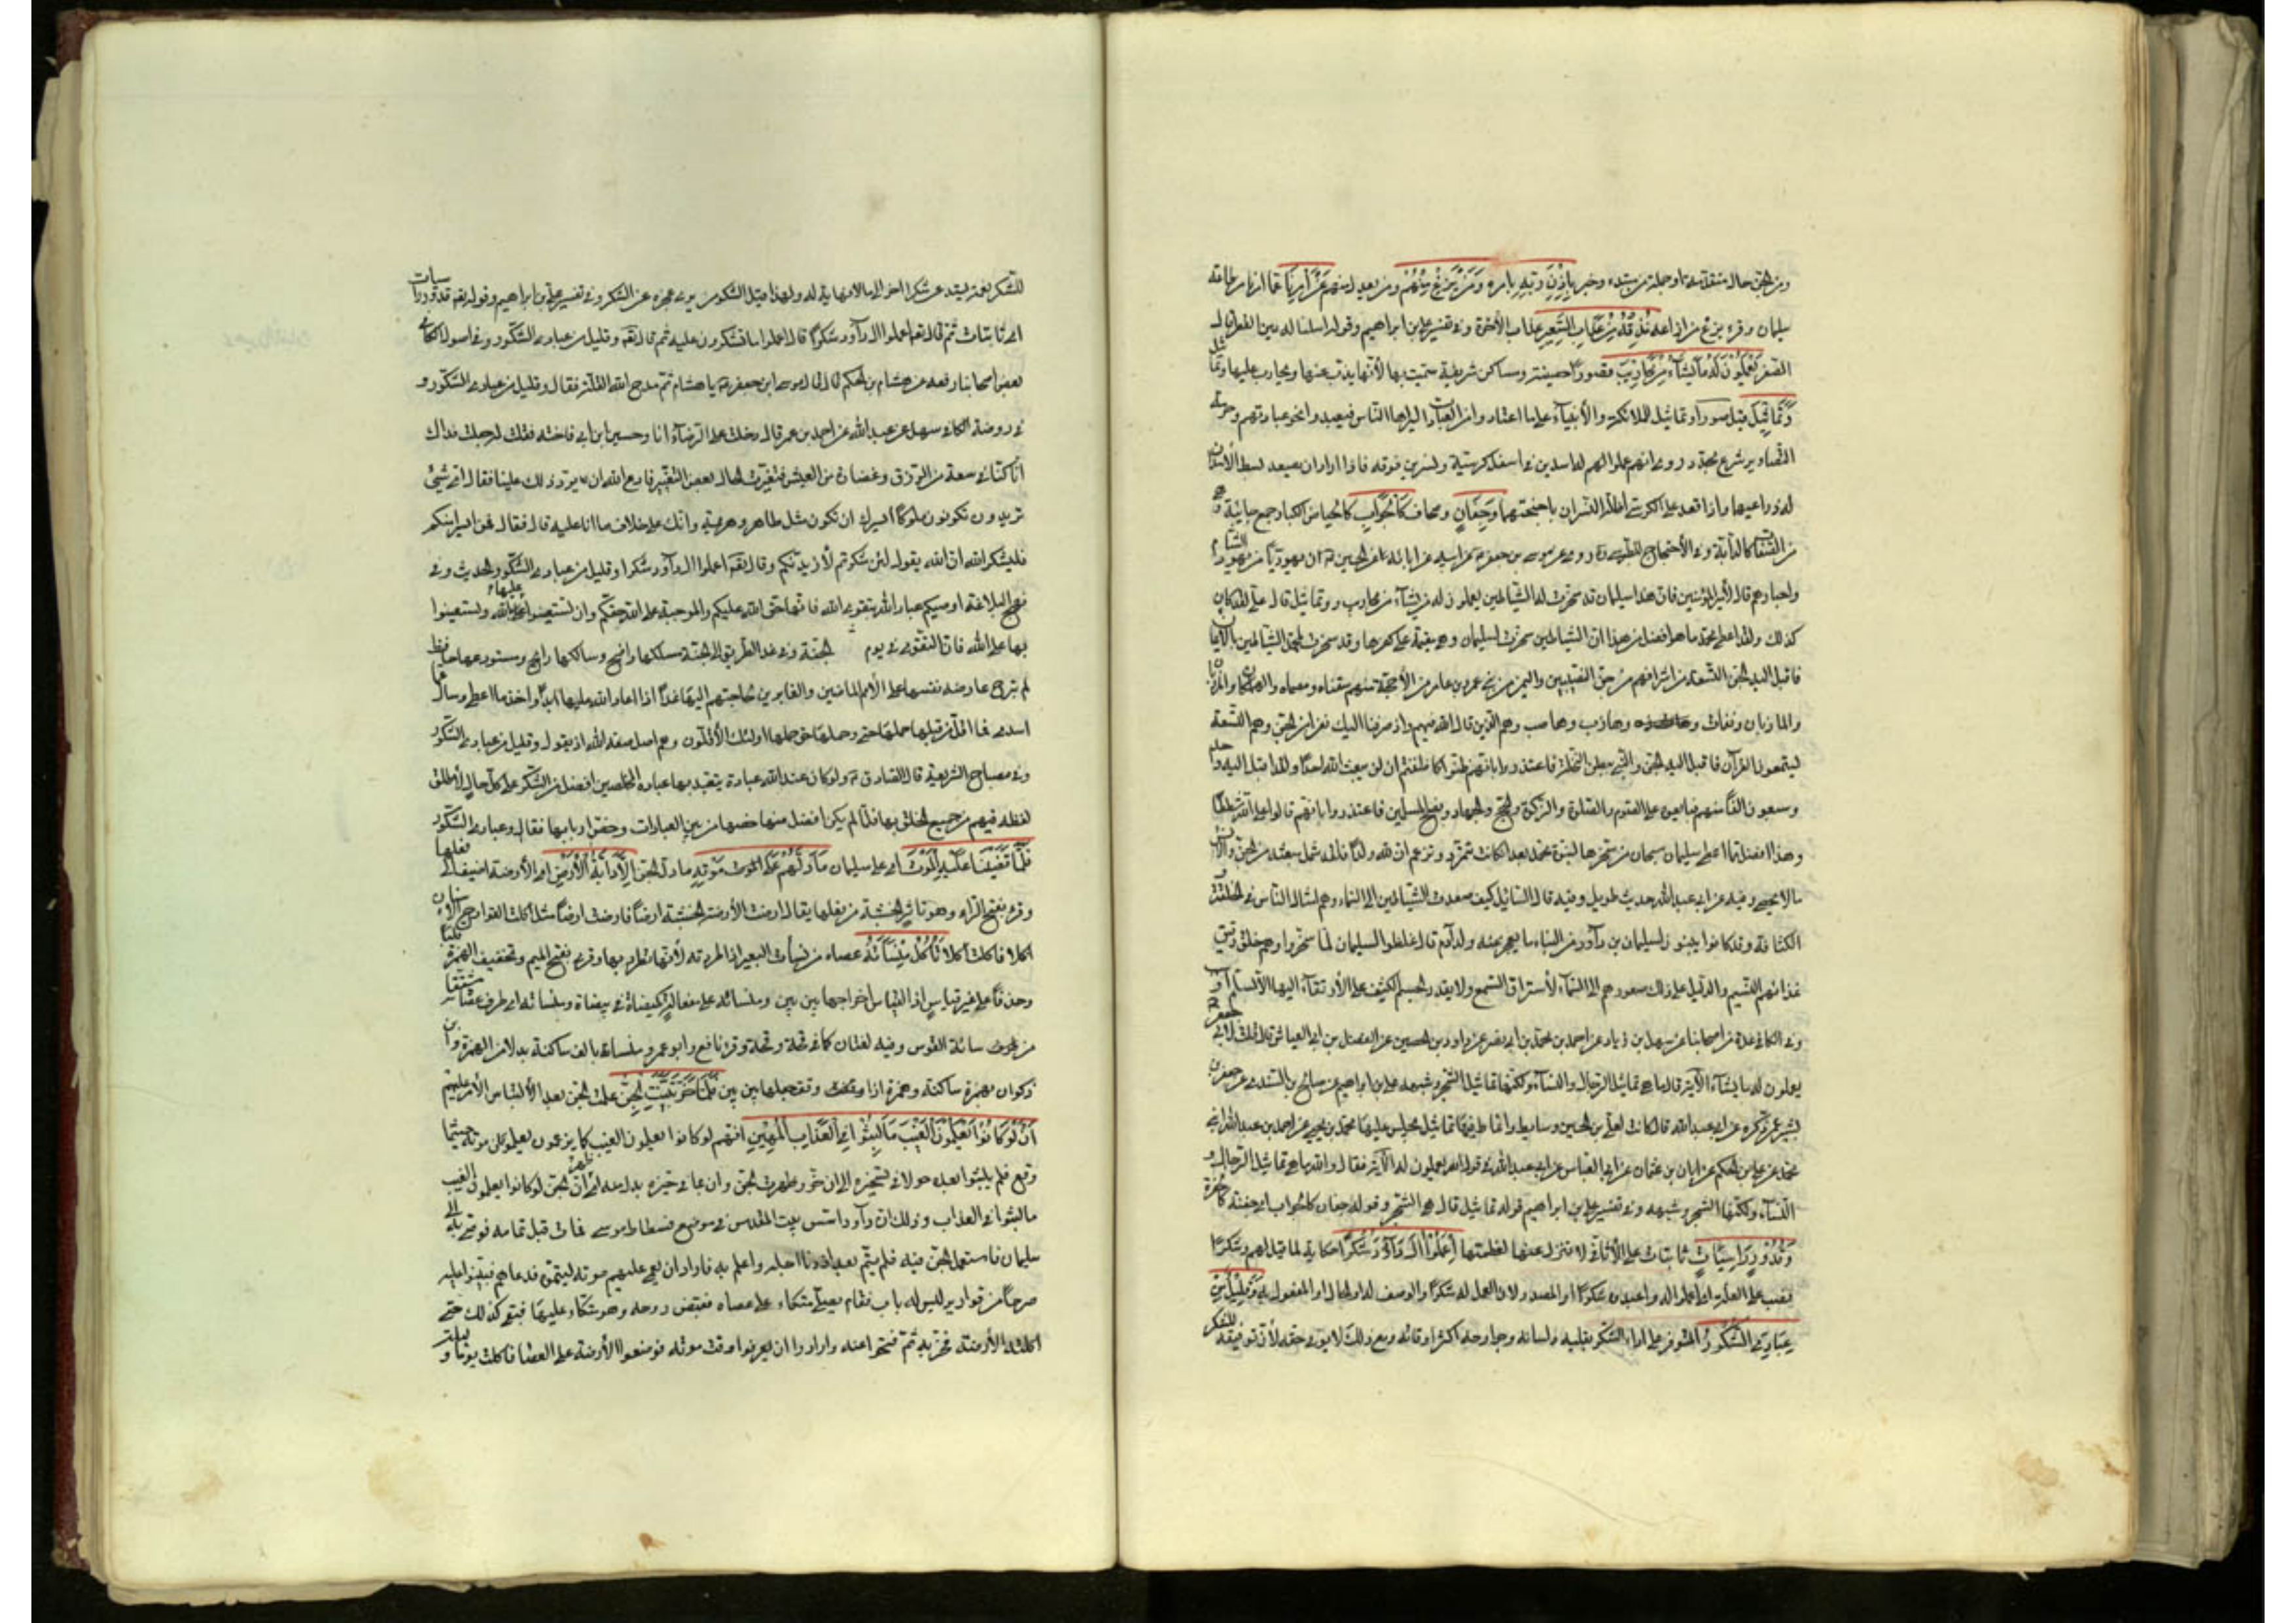 ومن الجن حال متقدمة او جملة من مبتدء وخبر بِإِذْنِ رَبِّهِ بامره وَمَنْ يَزِغْ مِنْهُمْ ومن يعدل منهم عَنْ أَمْرِنَا عما امرنا من طاعة
سليمان وقرء يزغ من ازاغه نُذِقْهُ مِنْ عَذَابِ السَّعِيرِ عذاب الآخرة وفي تفسير علي بن ابراهيم وقوله واسلنا له عين القطر قال
الصفر يَعْمَلُونَ لَهُ مَا يَشَاءُ مِنْ مَحَارِيبَ قصورا حصينة ومساكن شريفة سميت بها لأنها يذب عنها ويحارب عليها
وَتَمَاثِيلَ قيل صورا وتماثيل للملائكة والأنبياء على ما اعتادوا من العبادات ليراها الناس فيعبدوا نحو عبادتهم وحرمة
التصاوير شرع مجدد روى انهم عملوا لهم له اسدين في اسفل كرسيه ونسرين فوقه فاذا اراد ان يصعد بسط الأسدان
له ذراعيهما واذا قعد على الكرسي اظله النسران باجنحتهما وَجِفَانٍ وصحاف كَالْجَوَابِ كالحياض الكبار جمع جابية
من الصفات كالدابة وفي الأحتجاج للطبرسي روى عن موسى بن جعفر عن ابيه عن ابائه عن الحسين ان يهوديا من يهود الشام
واحبارهم قال لأمير المؤمنين فان هذا سليمان قد سخرت له الشياطين يعملون له ما يشاء من محاريب وتماثيل قال علي لقد كان
كذلك ولقد اعطى محمد ما هو افضل من هذا ان الشياطين سخرت لسليمان وهي مقيمة على كفرها وقد سخرت لمحمد الشياطين بالايمان
فاقبل اليه الجن التسعة من اشرافهم من جن نصيبين واليمن من بني عمرو بن عامر من الأحجة منهم
والمازبان ونفات وهاذب وهاصب وهم الذين قال الله فيهم واذ صرفنا اليك نفرا من الجن وهم التسعة
يستمعون القرآن فاقبل اليه الجن والنبي ببطن النخلة فاعتذروا بانهم ظنوا كما ظننتم ان لن يبعث الله احدا ولقد اقبل اليه احد
وسبعون الفا منهم فبايعوه على الصوم والصلوة والزكوة والحج والجهاد ونصح المسلمين فاعتذروا بانهم قالوا على الله شططا
وهذا افضل مما اعطى سليمان سبحان من سخرها لنبوة محمد بعد ان كانت تتمرد وتزعم ان لله ولدا فلقد شمل مبعثه من الجن والانس
ما لا يحصى وفيه عن ابي عبدالله حديث طويل وفيه قال السائل كيف صعدت الشياطين الى السماء وهم امثال الناس في الخلقة
الكثافة وقد كانوا يبنون لسليمان بن داود من البناء ما يعجز عنه ولد آدم قال غلظوا لسليمان لما سخروا وهم خلق رقيق
غذائهم التنسيم والدليل على ذلك صعودهم الى السماء لأستراق السمع ولا يقدر الجسم الكثيف على الأرتقاء اليها الا بسلم او سبب
وفي الكافي عدة من اصحابنا عن سهل بن زياد عن احمد بن محمد بن ابي نصر عن داود بن الحسين عن الفضل بن ابي العباس قال قلت لأبي جعفر
يعملون له ما يشاء الآية قال ما هي تماثيل الرجال والنساء ولكنها تماثيل الشجر وشبهه علي بن ابراهيم عن صالح بن السندي عن جعفر بن
بشير عمن ذكره عن ابي عبدالله قال كانت لعلي بن الحسين وسايد وانماط فيها تماثيل يجلس عليها محمد بن يحيى عن احمد بن عبدالله ابن
محمد عن علي بن الحكم عن ابان بن عثمان عن ابي العباس عن ابي عبدالله في قول الله يعملون له الآية فقال والله ما هي تماثيل الرجال و
النساء ولكنها الشجر وشبهه وفي تفسير علي بن ابراهيم قوله تماثيل قال هي الشجر وقوله وجفان كالجواب اي جفنة كالحفرة
وَقُدُورٍ رَاسِيَاتٍ ثابتات على الأثافي لا تنزل عنها لعظمتها اِعْمَلُوا آلَ دَاوُدَ شُكْرًا حكاية لما قيل لهم وشكرا
نصب على العلة اي اعملوا له واعبدوه شكرا او المصدر لان العمل له شكرا او الوصف له او الحال او المفعول به وَقَلِيلٌ مِنْ
عِبَادِيَ الشَّكُورُ المتوفر على اداء الشكر بقلبه ولسانه وجوارحه اكثر اوقاته ومع ذلك لا يوفي حقه لأن توفيقه للشكر
للشكر نعمة يستدعي شكرا آخر الى ما لا نهاية له ولهذا قيل الشكور من يرى عجزه عن الشكر وفي تفسير علي بن ابراهيم وقوله تعالى قدور راسيات
اى ثابتات ثم قال تعالى اعملوا ال داود شكرا قال اعملوا ما تشكرون عليه ثم قال تعالى وقليل من عبادي الشكور وفي اصول الكافي
بعض اصحابنا رفعه عن هشام بن الحكم قال قال لي موسى ابن جعفر يا هشام ثم مدح الله القلة فقال وقليل من عبادي الشكور و
في روضة الكافي سهل عن عبيدالله عن احمد بن عمر قال دخلت على الرضا انا وحسين ابن ابي فاخته فقلت له جعلت فداك
انا كنا في سعة من الرزق وغضارة من العيش فتغيرت الحال بعض التغيير فادع الله ان يرد ذلك علينا فقال اي شيء
تريدون تكونون ملوكا ايسرك ان تكون مثل طاهر وهرثمة وانك على خلاف ما انت عليه قال فقال فمن ايسر منكم
فليشكر الله ان الله يقول لئن شكرتم لأزيدنكم وقال تعالى اعملوا ال داود شكرا وقليل من عبادي الشكور الحديث وفي
نهج البلاغة اوصيكم عباد الله بتقوى الله فانها حق الله عليكم والموجبة على الله حقكم وان تستعينوا عليها بالله وتستعينوا
بها على الله فان التقوى في يوم الجنة وفي غد الطريق الى الجنة مسلكها واضح وسالكها رابح ومستودعها حافظ
لم تبرح عارضة نفسها على الأمم الماضين والغابرين لحاجتهم اليها غدا اذا اعاد الله ما ابدا واخذ ما اعطى وسأل عما
اسدى فما اقل من قبلها وحملها حق حملها اولئك الأقلون وهم اهل صفة الله اذ يقول وقليل من عبادي الشكور
وفي مصباح الشريعة قال الصادق ولو كان عند الله عبادة يتعبد بها عباده المخلصين افضل من الشكر على كل حال لأطلق
لفظه فيهم من جميع الخلق بها فلما لم يكن افضل منها خصها من بين العبادات وخص اربابها فقال وقليل من عبادي الشكور
فَلَمَّا قَضَيْنَا عَلَيْهِ الْمَوْتَ اي على سليمان مَا دَلَّهُمْ عَلَى الموت مَوْتِهِ ما دل الجن اِلَّا دَابَّةُ الْأَرْضِ اي الأرضة اضيفت الى فعلها
وقرء بفتح الراء وهو تاثر الخشبة من فعلها يقال ارضت الأرضة الخشبة ارضا فارضت ارضا مثل اكلت القوادح الاسنان
اكلا فاكلت اكلا تَأْكُلُ مِنْسَأَتَهُ عصاه من نسأت البعير اذا طردته لأنها يطرد بها وقرء بفتح الميم وتخفيف الهمزة قلبا
وحذفا على غير قياس اذ القياس اخراجها بين بين ومنسائته على مفعالة كميضاة في ميضاة ومنسأته اي طرف عصاه مشتقا
من سائة القوس وفيه لغتان كما في قحة وقحة وقرء نافع وابوعمرو منساته بالف ساكنة بدلا من الهمزة وابن
ذكوان بهمزة ساكنة وحمزة اذا وقف جعلها بين بين فَلَمَّا خَرَّ تَبَيَّنَتِ الْجِنُّ علمت الجن بعد الألتباس الأمر عليهم
اَنْ لَوْ كَانُوا يَعْلَمُونَ الْغَيْبَ مَا لَبِثُوا فِي الْعَذَابِ الْمُهِينِ انهم لو كانوا يعلمون الغيب كما يزعمون لعلموا موته حيثما
وقع فلم يلبثوا بعده حولا في تسخيره الى ان خر وظهرت الجن وان بما في حيزه بدل منه اي ظهر ان الجن لو كانوا يعلمون الغيب
ما لبثوا في العذاب وذلك ان داود اسس بيت المقدس في موضع فسطاط موسى فمات قبل تمامه فوصى به الى
سليمان فاستعمل الجن فيه فلم يتم بعد اذ دنا اجله واعلم به فاراد ان يعمي عليهم موته ليتموه فدعاهم فبنوا عليه
صرحا من قوارير ليس له باب فقام يصلي متكاء على عصاه فقبض روحه وهو متكاء عليها فبقي كذلك حتى
اكلتها الأرضة فخر ثم فتحوا عنه وارادوا ان يعرفوا وقت موته فوضعوا الأرضة على العصا فاكلت يوما و